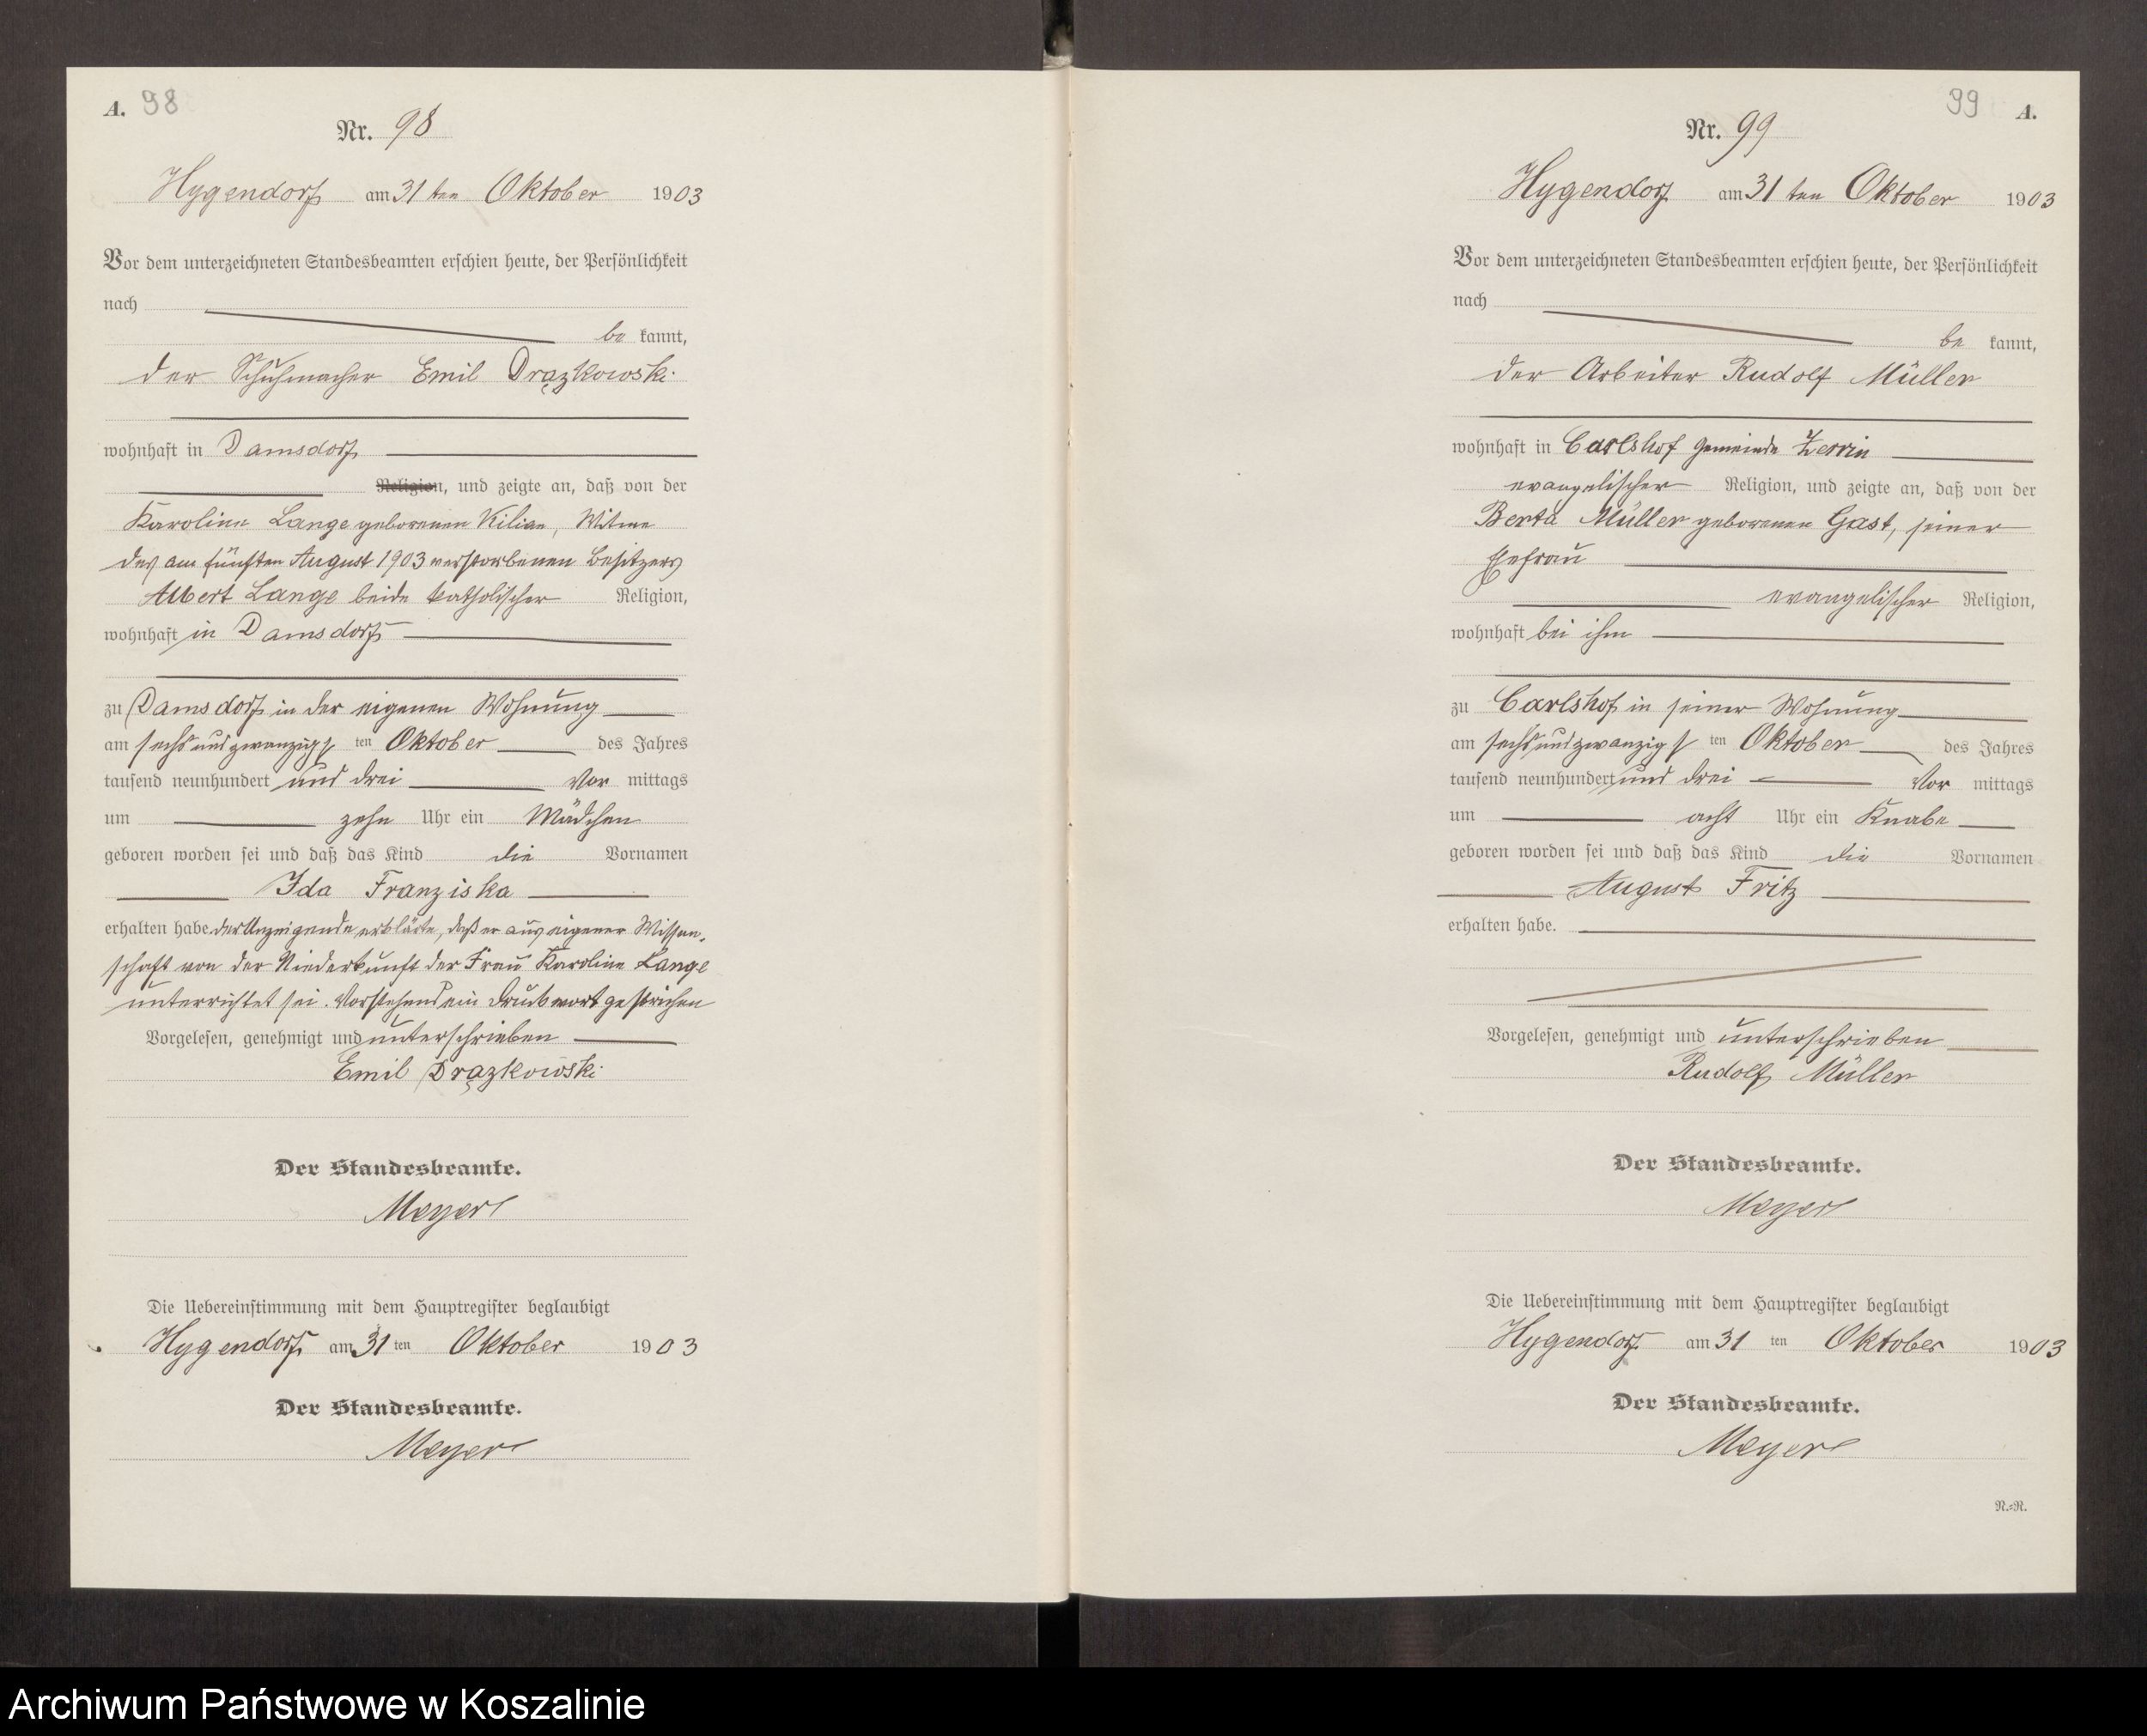 A. 98
Nr. 98
Hygendorf am 31 ten Oktober 1903
Vor dem unterzeichneten Standesbeamten erschien heute, der Persönlichkeit
nach
be kannt,
der Schuhmacher Emil Drązkowski
wohnhaft in Damsdorf
Religion, und zeigte an, daß von der
Karoline Lange geborenen Kilian, Witwe
des am fünften August 1903 verstorbenen Besitzers
Albert Lange beide katholischer Religion,
wohnhaft in Damsdorf
zu Damsdorf in der eigenen Wohnung
am sechsundzwanzigs ten Oktober des Jahres
tausend neunhundert und drei Vor mittags
um zehn Uhr ein Mädchen
geboren worden sei und daß das Kind die Vornamen
Ida Franziska
erhalten habe. Der Anzeigende erklärte, daß er aus eigener Wissen-
schaft von der Niederkunft der Frau Karoline Lange
unterrichtet sei. Vorstehend ein Druckwort gestrichen
Vorgelesen, genehmigt und unterschrieben
Emil Drązkowski
Der Standesbeamte.
Meyer
Die Uebereinstimmung mit dem Hauptregister beglaubigt
Hygendorf am 31 ten Oktober 1903
Der Standesbeamte.
Meyer
99 A.
Nr. 99
Hygendorf am 31 ten Oktober 1903
Vor dem unterzeichneten Standesbeamten erschien heute, der Persönlichkeit
nach
be kannt,
der Arbeiter Rudolf Müller
wohnhaft in Carlshof Gemeinde Zerrin
evangelischer Religion, und zeigte an, daß von der
Berta Müller geborenen Gast, seiner
Ehefrau
evangelischer Religion,
wohnhaft bei ihm
zu Carlshof in seiner Wohnung
am sechsundzwanzigs ten Oktober des Jahres
tausend neunhundert und drei Vor mittags
um acht Uhr ein Knabe
geboren worden sei und daß das Kind die Vornamen
August Fritz
erhalten habe.
Vorgelesen, genehmigt und unterschrieben
Rudolf Müller
Der Standesbeamte.
Meyer
Die Uebereinstimmung mit dem Hauptregister beglaubigt
Hygendorf am 31 ten Oktober 1903
Der Standesbeamte.
Meyer
N.=R.
Archiwum Państwowe w Koszalinie